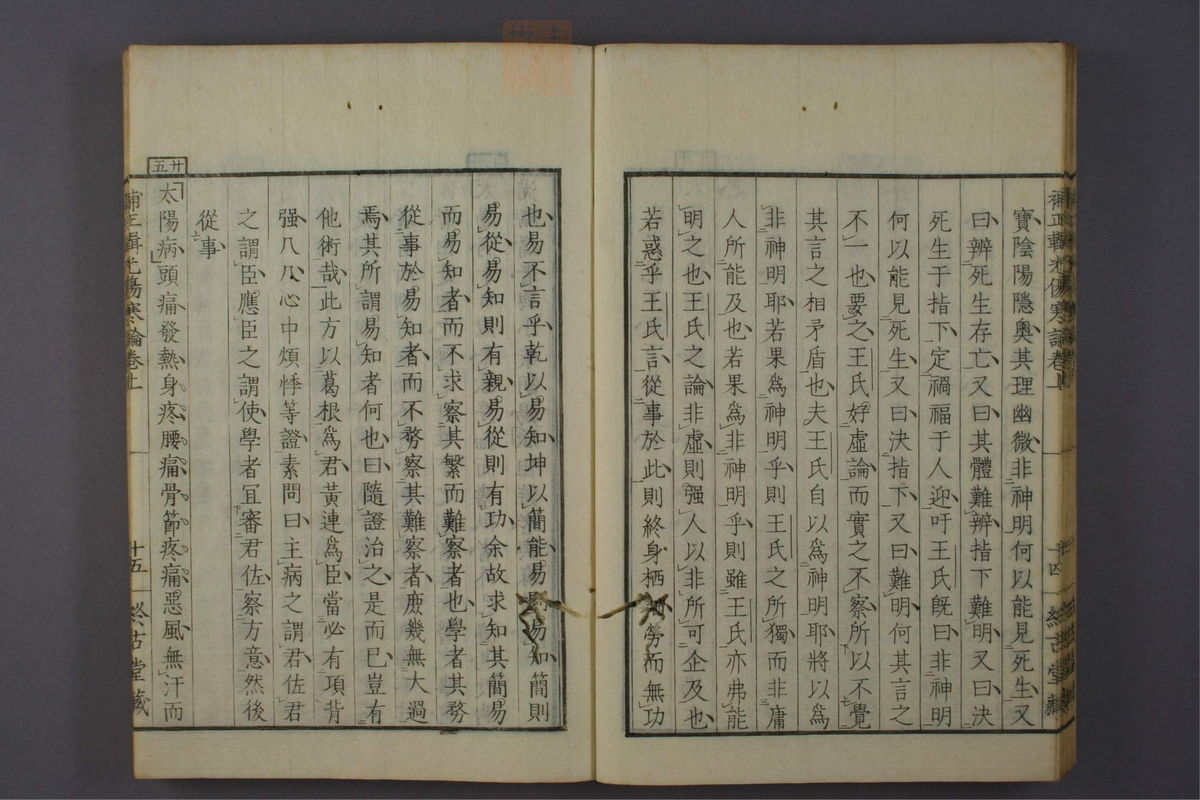 補正輯光傷寒論卷上
寶陰陽隱奧其理幽微非神明何以能見死生又
曰辨死生存亡又曰其體難辨指下難明又曰決
死生于指下定禍福于人迎吁王氏既曰非神明
何以能見死生又曰決指下又曰難明何其言之
不一也要之王氏好虛論而實之不察所以不覺
其言之相矛盾也夫王氏自以爲神明耶將以爲
非神明耶若果爲神明乎則王氏之所獨而非庸
人所能及也若果爲非神明乎則雖王氏亦弗能
明之也王氏之論非虛則强人以非所可企及也
若惑乎王氏言從事於此則終身栖栖勞而無功
也易不言乎乾以易知坤以簡能易則易知簡則
易從易知則有親易從則有功余故求知其簡易
而易知者而不求察其繁而難察者也學者其務
從事於易知者而不務察其難察者庶幾無大過
焉其所謂易知者何也曰隨證治之是而巳豈有
他術哉此方以葛根爲君黃連爲臣當必有項背
强几几心中煩悸等證素問曰主病之謂君佐君
之謂臣應臣之謂使學者宜審君佐察方意然後
從事
廿五
太陽病頭痛發熱身疼腰痛骨節疼痛惡風無汗而
補正輯光傷寒論卷上
十五